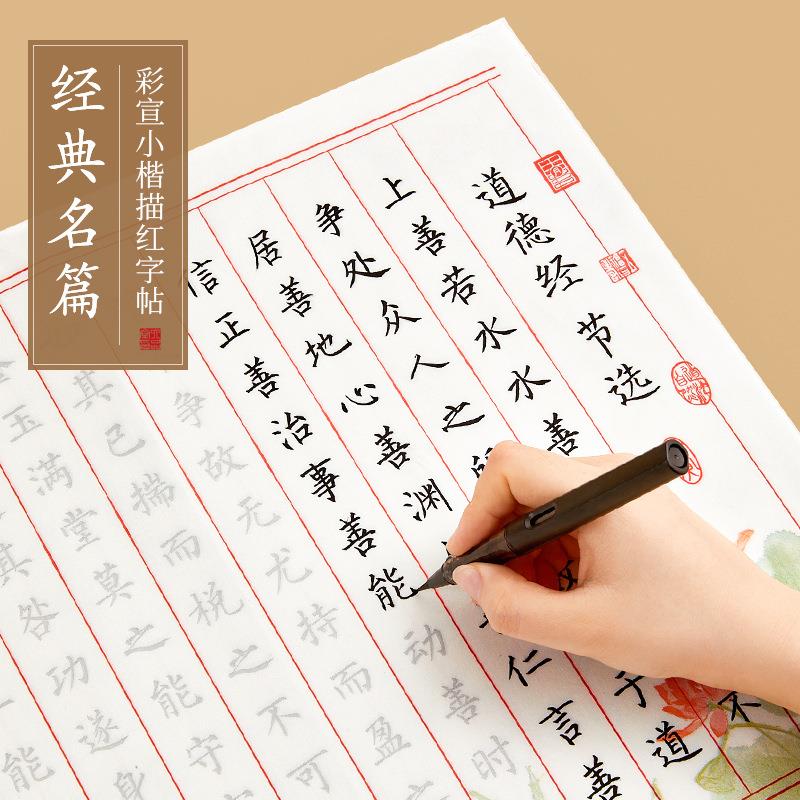 经典名篇
彩宣小楷描红字帖
道德经 节选
上善若水水善 不
争处众人之 于道
居善地心善渊 仁言善
信正善治事善能动善时
争故无尤持而盈
其已揣而棁之不可
金玉满堂莫之能守
其咎功遂身
能